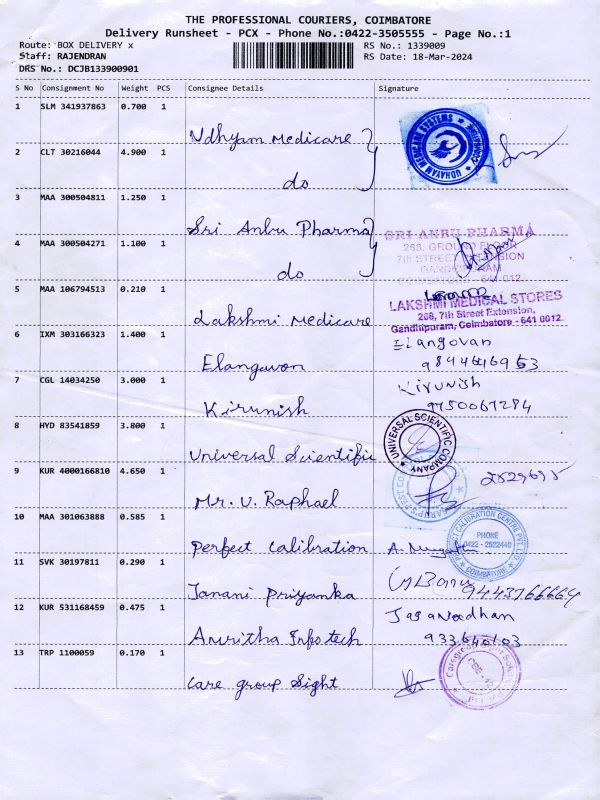 THE PROFESSIONAL COURIERS, COIMBATORE
Delivery Runsheet - PCX - Phone No.:0422-3505555 - Page No.:1
Route: BOX DELIVERY x RS No.: 1339009
Staff: RAJENDRAN RS Date: 18-Mar-2024
DRS No.: DCJB133900901
S No Consignment No Weight PCS Consignee Details Signature
1 SLM 341937863 0.700 1
Udhyam Medicare
UDHAYAM MEDICARE SYSTEMS
2 CLT 30216044 4.900 1
do
3 MAA 300504811 1.250 1
Sri Anbu Pharma
SRI ANBU PHARMA
4 MAA 300504271 1.100 1
268, GROUND FLOOR
7th STREET EXTENSION
GANDHIPURAM
do
641 012
5 MAA 106794513 0.210 1
LAKSHMI MEDICAL STORES
268, 7th Street Extension,
Gandhipuram, Coimbatore - 641 0012
Lakshmi Medicare
6 IXM 303166323 1.400 1
Elangovan
Elangavon
7 CGL 14034250 3.000 1
Kirunish
9750067284
Kirunish
8 HYD 83541859 3.800 1
UNIVERSAL SCIENTIFIC COMPANY
Universal Scientific
9 KUR 4000166810 4.650 1
Mr. V. Raphael
10 MAA 301063888 0.585 1
PHONE
0422 - 2522440
COIMBATORE
Perfect Calibration
11 SVK 30197811 0.290 1
9443766664
Janani Priyanka
12 KUR 531168459 0.475 1
Jaganadhan
Amritha Infotech
933640103
13 TRP 1100059 0.170 1
Care group Sight